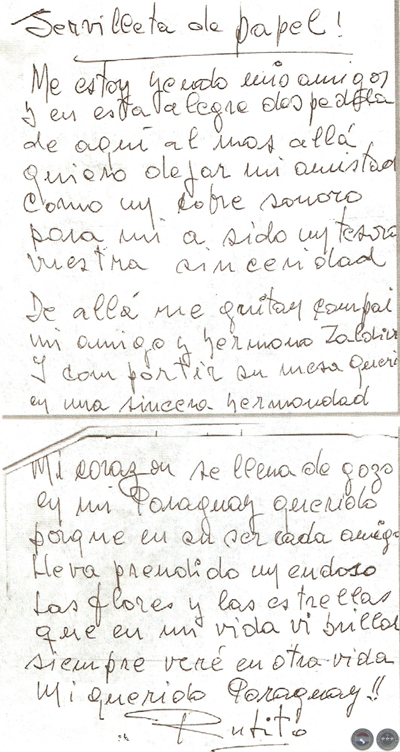 Servilleta de papel!
Me estoy yendo mis amigos
y en esta alegre despedida
de aquí al mas allá
quiero dejar mi amistad
como un cobre sonoro
para mi a sido un tesoro
vuestra sinceridad
De allá me gritan compai
mi amigo y hermano Zaldiva
Y compartir su mesa queri
en una sincera hermandad
Mi corazon se llena de gozo
en mi Paraguay querido
porque en su ser cada amigo
lleva prendido un endoso
Las flores y las estrellas
que en mi vida vi brillar
siempre veré en otra vida
Mi querido Paraguay!!